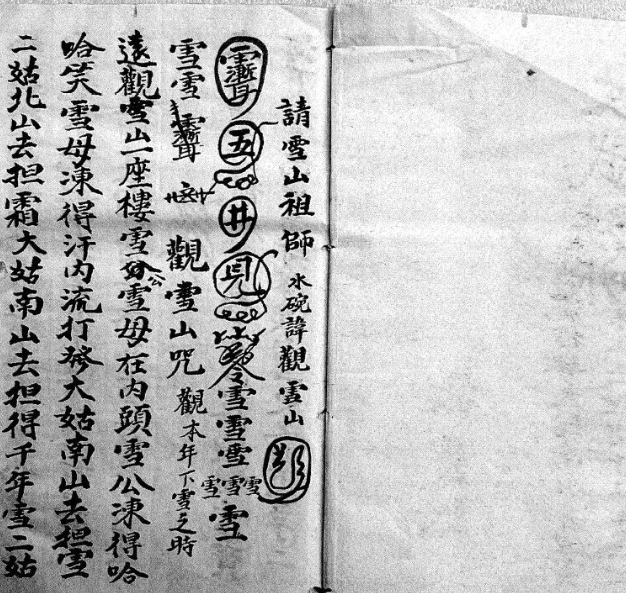 請雪山祖師 水碗諱觀雪山
五 井 見 雪雪雪雪雪雪雪
雪雪 觀雪山咒 觀本年下雪之時
遠觀雪山一座樓雪公雪母在內頭雪公凍得哈
哈笑雪母凍得汗內流打發大姑南山去担雪
二姑北山去担霜大姑南山去担得千年雪二姑